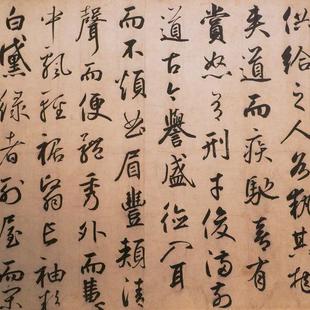 供給之人各執其物
夾道而疾馳喜有
賞怒有刑才俊滿前
道古今譽盛德入耳
而不煩曲眉豐頰清
聲而便體秀外而惠
中飄輕裾翳長袖粉
白黛綠者列屋而閑